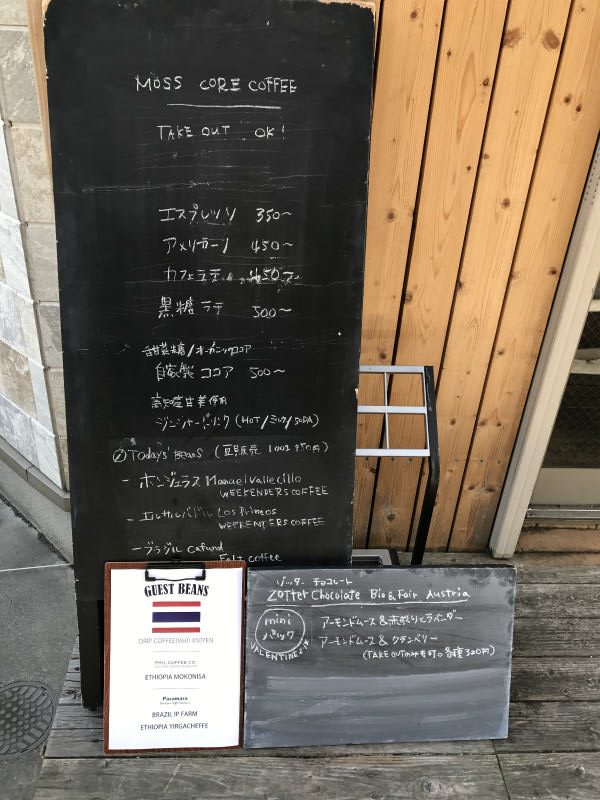 MOSS CORE COFFEE
TAKE OUT OK!
エスプレッソ 350〜
アメリカーノ 450〜
カフェラテ 450〜
黒糖ラテ 500〜
甜菜糖/オーガニックココア
自家製ココア 500〜
高知産生姜使用
ジンジャードリンク (HOT/ミルク/SODA)
Today's Beans (豆販売 100g 950円)
- ホンジュラス Manuel Vallecillo
WEEKENDERS COFFEE
- エルサルバドル Los Pirineos
WEEKENDERS COFFEE
- ブラジル Cafund
coffee
GUEST BEANS
DRIP COFFEE(160) 450YEN
PHIL COFFEE CO.
ETHIOPIA MOKONISA
Pacamara
BRAZIL IP FARM
ETHIOPIA YIRGACHEFFE
ゾッター チョコレート
Zotter Chocolate Bio & Fair Austria
mini パック
VALENTINE
アーモンドムース&赤スグリとラベンダー
アーモンドムース&クランベリー
(TAKE OUTのみも可。各種320円)